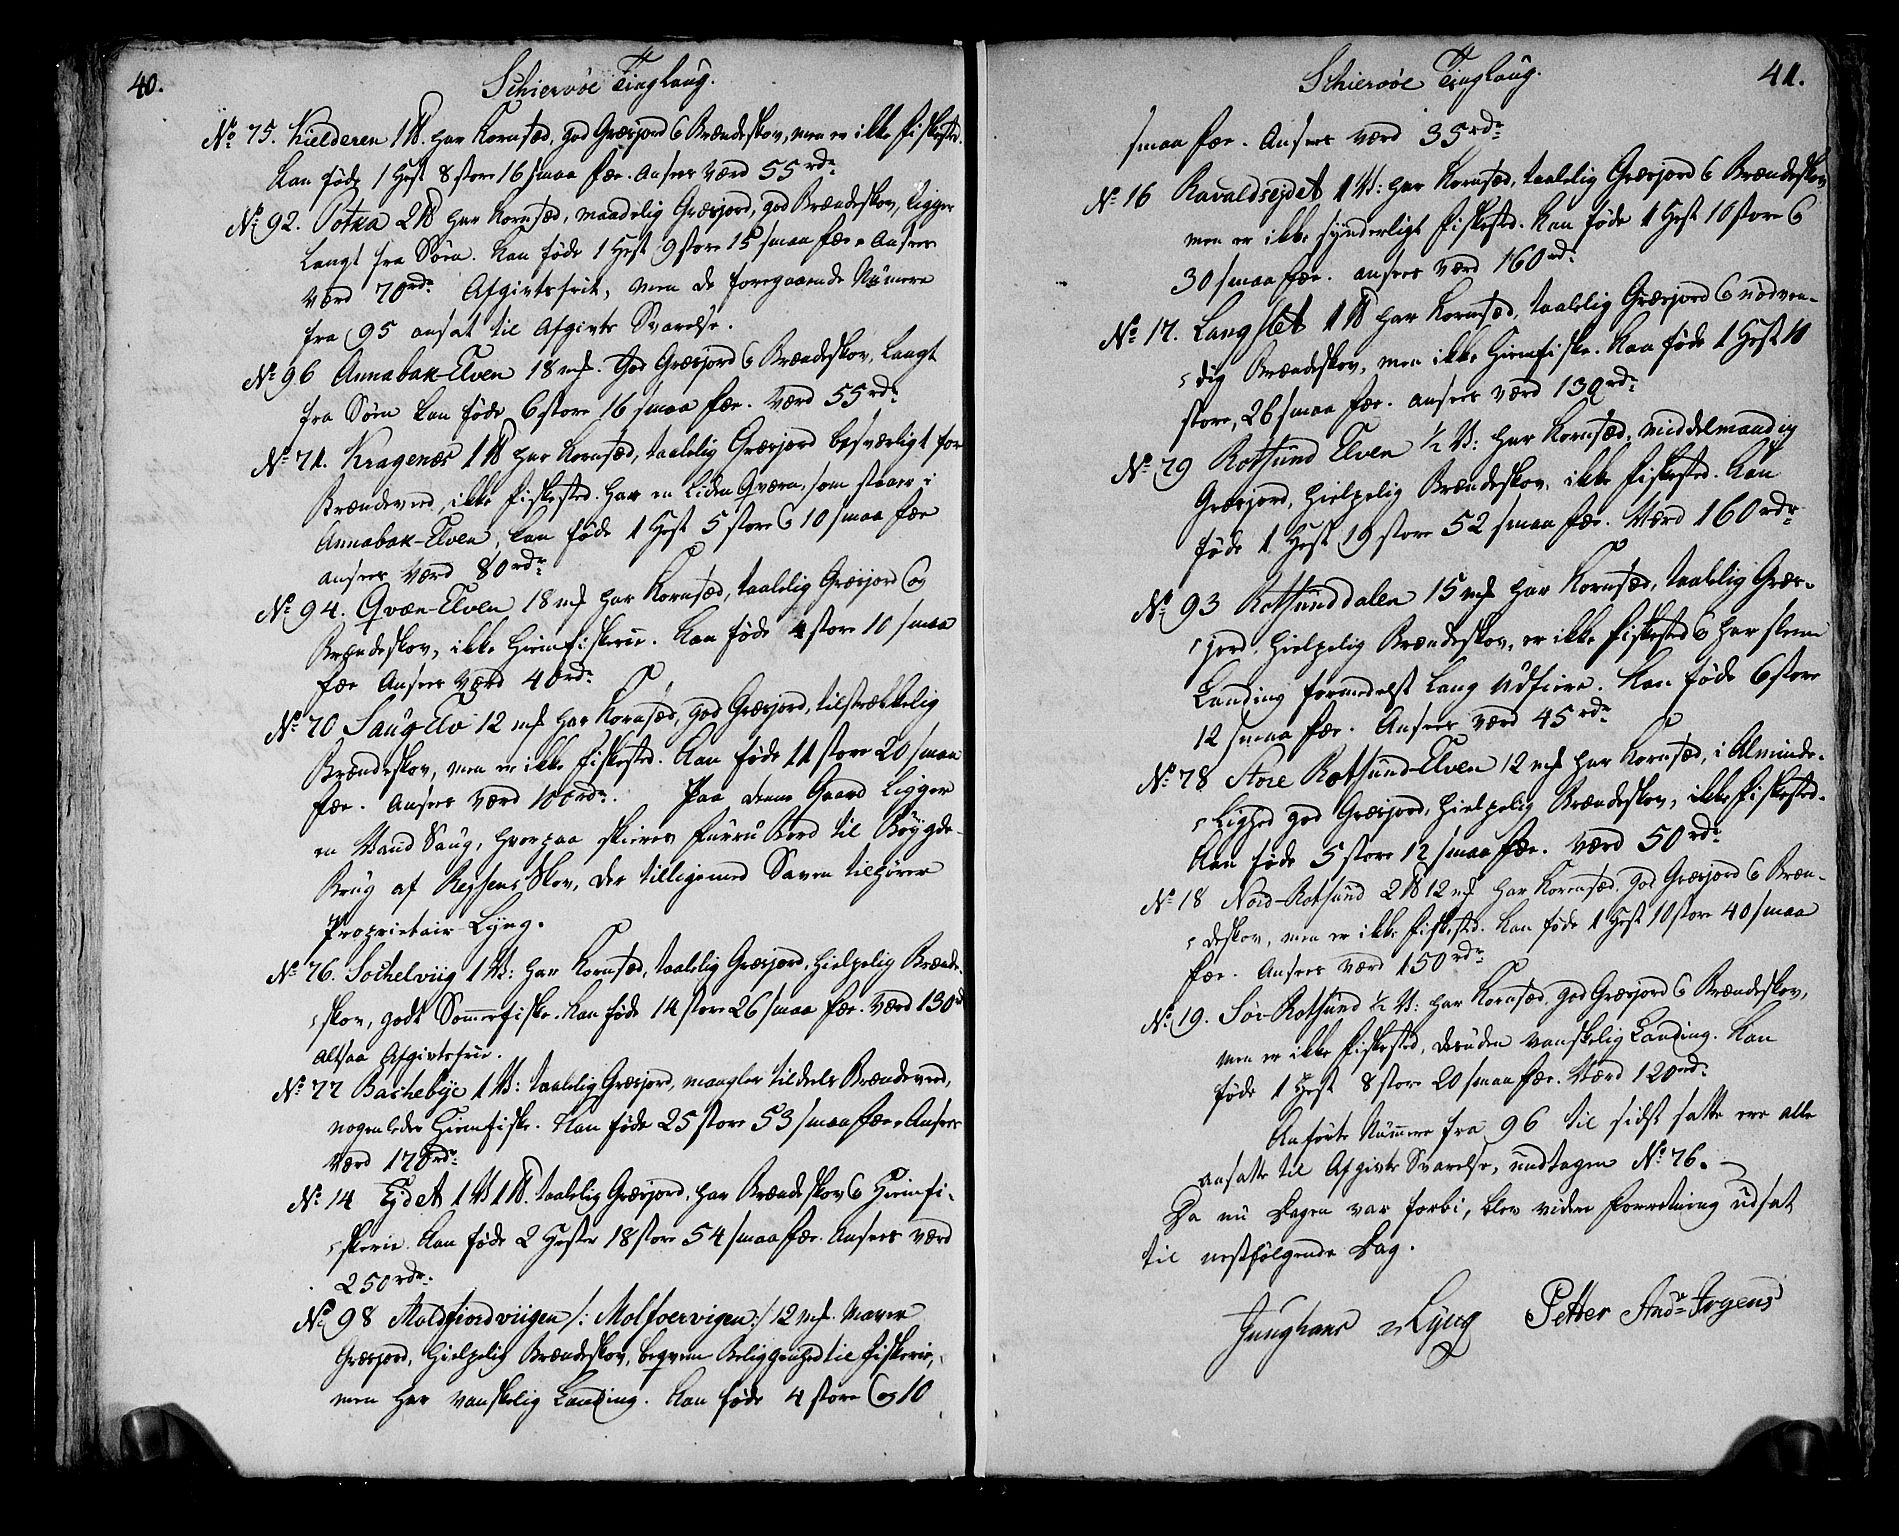 40.
Schiervöe Tinglaug.
No 75. Kielderen 1 ℔. har Kornsæd, god Græsjord & Brændeskov, men er ikke fiskested.
Kan föde 1 Hest 8 store 16 smaa fær. Ansees værd 55 rdr
No 92. Potka 2 ℔ har Kornsæd, maadelig Græsjord, god Brændeskov, ligger
langt fra Söen. Kan föde 1 Hest 9 store 15 smaa fær. Ansees
værd 70 rdr Afgivtsfrit, men de foregaaende Numere
fra 95 ansat til Afgivts Svarelse.
No 96 Annabak-Elven 18 mk. God Græsjord & Brændeskov, langt
fra Söen kan föde 6 store 16 smaa fær. værd 55 rdr
No 71. Kragenæs 1 ℔ har Kornsæd, taalelig Græsjord besværligt for
Brændeved, ikke fiskested. har en liden Qværn, som staaer i
Annabak-Elven, kan föde 1 Hest 5 store & 10 smaa fær
ansees værd 80 rdr
No 94. Qvæn-Elven 18 mk har Kornsæd, taalelig Græsjord og
Brændeskov, ikke Hiemfiskerie. Kan föde 4 store 10 smaa
fær Ansees værd 40 rdr
No 70 Saug Elv 12 mk har Kornsæd, god Græsjord, tilstrækkelig
Brændeskov, men er ikke fiskested. Kan föde 11 store 20 smaa
fær. Ansees værd 100 rdr. Paa denne Gaard ligger
en Vand Saug, hvorpaa skieres furru Bord til Böygde-
Brug af Reysens Skov, der tilligemed Saven tilhörer
Proprietair Lyng.
No 76. Sochelviig 1 V: har Kornsæd, taalelig Græsjord, hielpelig Brænde-
skov, godt Sommerfiske. Kan föde 14 store 26 smaa fær. værd 130 rd
altsaa Afgivtsfrie.
No 77 Bachebye 1 V: taalelig Græsjord, mangler tildeels Brændeved,
nogenledes Hiemfiske. Kan föde 25 store 53 smaa fær. Ansees
værd 170 rdr
No 14 Ejdet 1 V 1 ℔. taalelig Græsjord, har Brændeskov & Hiemfi-
skerie. Kan föde 2 Hester 18 store 54 smaa fær. Ansees værd
250 rdr.
No 98 Moldfiordviigen /: Molfoervigen :/ 12 mk. Maver
Græsjord, hielpelig Brændeskov, beqvem Beliggenhed til fiskerie,
men har vanskelig Landing. Kan föde 4 store og 10
Schiervöe Tinglaug.
41.
smaa fær. Ansees værd 35 rdr
No 16 Ravaldsejdet 1 V: har Kornsæd, taalelig Græsjord & Brændeskov
men er ikke synderligt fiskested. Kan föde 1 Hest 10 store &
30 smaa fær. ansees værd 160 rdr
No 17. Langslet 1 ℔ har Kornsæd, taalelig Græsjord & nödven-
dig Brændeskov, men ikke Hiemfiske. Kan föde 1 Hest 10
store, 26 smaa fær. ansees værd 130 rdr
No 79 Rotsund Elven ½ V: har Kornsæd, middelmaadig
Græsjord, hielpelig Brændeskov, ikke fiskested. Kan
föde 1 Hest 19 store 52 smaa fær. Værd 160 rdr
No 93 Rotsunddalen 15 mk har Kornsæd, taalelig Græs-
jord, hielpelig Brændeskov, er ikke fiskested & har slem
Landing formedelst lang Udfiære. Kan föde 6 store
12 smaa fær. Ansees værd 45 rdr
No 78 Store Rotsund-Elven 12 mk har Kornsæd, i Alminde-
lighed god Græsjord, hielpelig Brændeskov, ikke fiskested.
Kan föde 5 store 12 smaa fær. værd 50 rdr
No 18 Nord-Rotsund 2 ℔ 12 mk har Kornsæd, god Græsjord & Bræn-
deskov, men er ikke fiskested. Kan föde 1 Hest 10 store 40 smaa
fær. Ansees værd 150 rdr
No 19. Sör-Rotsund ½ V: har Kornsæd, god Græsjord & Brændeskov,
men er ikke fiskested, desuden vanskelig Landing. Kan
föde 1 Hest 8 store 20 smaa fær. Værd 120 rdr
Anförte Numere fra 96 til sidst satte ere alle
ansatte til Afgivts Svarelse, undtagen No 76.
Da nu Dagen var forbi, blev videre Forretning udsat
til nestfölgende Dag.
Junghans Lyng Petter Andr Irgens